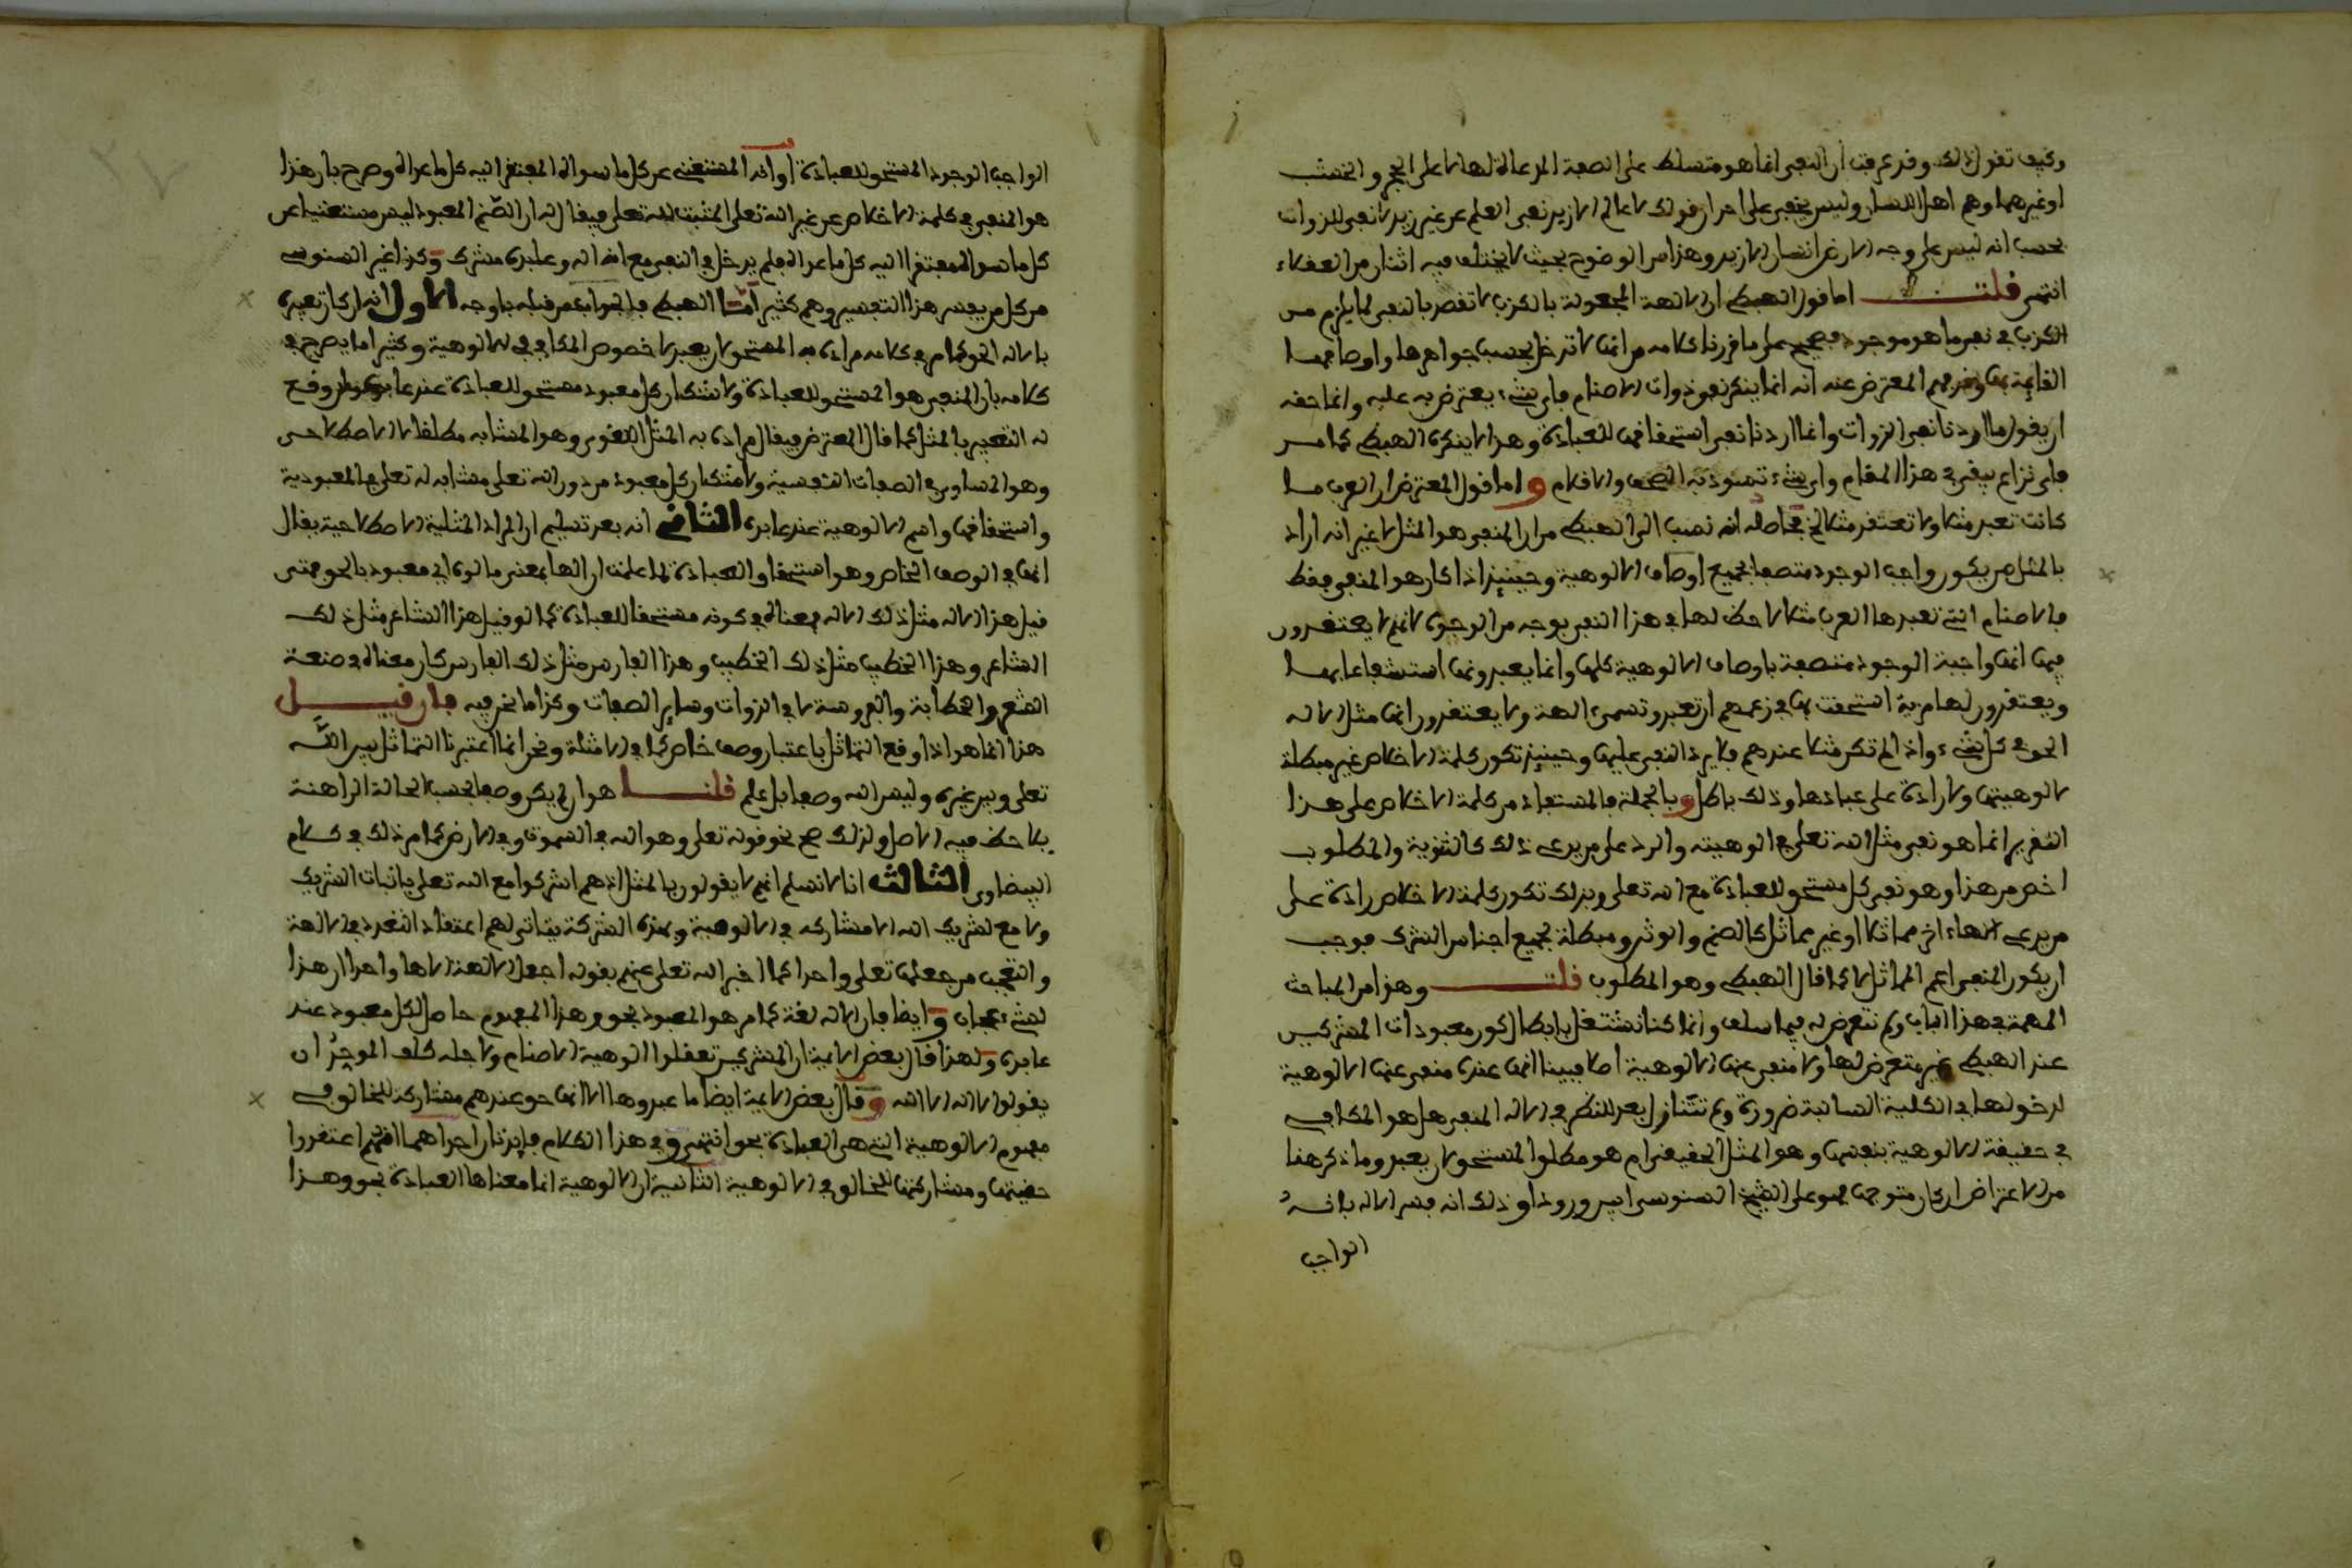 وكيف تقول ذلك وقد عرفت ان النفي انما هو متسلط على الصفة المدعاة لها لا على الحجر والخشب
او غيرهما وهم اهل اللسان وليس يخفى على احد ان قولك لا عالم الا زيد نفي العلم عن غير زيد لا نفي للذوات
بحسب انه ليس على وجه الارض انسان الا زيد وهذا من الوضوح بحيث لا يختلف فيه اثنان من العقلاء
انتهى قلت اما قول الهبطي ان الالهة المجعولة بالكذب لا تقصد بالنفي لما يلزم من
الكذب في نفي ما هو موجود فصحيح على ما قررنا كلامه من انها لا تدخل بحسب جواهرها واوصافها
القايمة بها وقد فهم المعترض عنه انه انما ينكر نفي ذوات الاصنام فاي شيء يعترض به عليه وانما حقه
ان يقول ما اردنا نفي الذوات وانما اردنا نفي استحقاقها للعبادة وهذا لا ينكره الهبطي كما مر
فاي نزاع يبقى في هذا المقام واي شيء تسود به الصحف والاقلام واما قول المعترض ان العرب ما
كانت تعبد مثلا ولا تعتقد مثلا الخ فحاصله انه نصب الى الهبطي من ان المنفي هو المثل لا غير انه اراد
بالمثل من يكون واجب الوجود متصفا بجميع اوصاف الالوهية وحينيذ اذا كان هو المنفي فقط
فالاصنام التي تعبدها العرب مثلا لا حظ لها في هذا النفي بوجه من الوجوه لانهم لا يعتقدون
فيها انها واجبة الوجود متصفة باوصاف الالوهية كلها وانما يعبدونها استشفاعا بها
ويعتقدون لها مزية استحقت بها في زعمهم ان تعبد وتسمى الهة ولا يعتقدون انها مثل الاله
الحق في كل شيء واذا لم تكن مثلا عندهم فلا يرد النفي عليها وحينيذ تكون كلمة الاخلاص غير مبطلة
لالوهيتها ولا رادة على عبادها وذلك باطل وبالجملة فالمستفاد من كلمة الاخلاص على هذا
التقرير انما هو نفي مثل الله تعلى في الوهيته والرد على من يدعى ذلك كالثنوية والمطلوب
اخص من هذا وهو نفي كل مستحق للعبادة مع الله تعلى وبذلك تكون كلمة الاخلاص رادة على
من يدعى الاها اخر مماثلا او غير مماثل كالصنم والوثن ومبطلة لجميع اجناس الشرك فوجب
ان يكون المنفي اعم لا المماثل كما قال الهبطي وهو المطلوب قلت وهذا من المباحث
المهمة في هذا الباب ولم نتعرض له فيما سلف وانما كنا نشتغل بابطال كون معبودات المشركين
عند الهبطي غير متعرض لها ولا منفي عنها الالوهية اصلا فبينا انها عنده منفي عنها الالوهية
لدخولها في الكلية السالبة ضرورة ولم نتنازل بعد للنظر في الاله المنفي هل هو المطابق
في حقيقة الالوهية بنفسها وهو المثل الحقيقي ام هو مطلق المستحق لان يعبد وما ذكر هنا
من الاعتراض ان كان متوجها فهو على الشيخ السنوسي اسبق ورودا وذلك انه فسر الاله بانه
الواجب
الواجب الوجود المستحق للعبادة او انه المستغني عن كل ما سواه المفتقر اليه كل ما عداه وصرح بان هذا
هو المنفي في كلمة الاخلاص عن غير الله تعلى المثبت لله تعلى فيقال له ان الصنم المعبود ليس مستغنيا عن
كل ما سواه مفتقرا اليه كل ما عداه فلم يدخل في النفي مع انه اله وعابده مشرك وكذا غير السنوسي
من كل من يفسر هذا التفسير وهم كثير اما الهبطي فالجواب عن قبله باوجه الاول انه ان كان تعبيره
بالاله الحق كما مر في كلامه مراده به المستحق لان يعبد لا خصوص المطابق في الالوهية وكثيرا ما يصرح في
كلامه بان المنفي هو المستحق للعبادة ولا شك ان كل معبود مستحق للعبادة عند عابديه وان وقع
له التعبير بالمثل كما قال المعترض فيقال مراده به المثل اللغوي وهو المشابه مطلقا لا الاصطلاحي
وهو المساوي في الصفات النفسية ولا شك ان كل معبود من دون الله تعلى مشابه له تعلى في المعبودية
واستحقاقها واسم الالوهية عند عابده الثاني انه بعد تسليم ان المراد المثلية الاصطلاحية يقال
انها في الوصف الخاص وهو استحقاق العبادة لما علمت ان الها بمعنى مالوه اي معبود بالحق فمتى
قيل هذا الاله مثل ذلك الاله فمعناه في كونه مستحقا للعبادة كما لو قيل هذا الشاعر مثل ذلك
الشاعر وهذا الخطيب مثل ذلك الخطيب وهذا الفارس مثل ذلك الفارس كان معناه في صنعة
الشعر والخطابة والفروسة لا في الذوات وساير الصفات وكذا ما نحن فيه فان قيل
هذا انما هو اذا وقع التماثل باعتبار وصف خاص كما في الامثلة ونحن انما اعتبرنا التماثل بين الله
تعلى وبين غيره وليس الله وصفا بل علم قلنا هو ان لم يكن وصفا بحسب الحالة الراهنة
يلاحظ فيه الاصل ولذلك صح نحو قوله تعلى وهو الله في السموت وفي الارض كما مر ذلك في كلام
البيضاوي الثالث انا لا نسلم انهم لا يقولون بالمثل اذ هم اشركوا مع الله تعلى باثبات الشريك
ولا معنى لشريك الله الا مشاركه في الالوهية وبهذه الشركة يتاتى لهم اعتقاد التعدد في الالهة
والتعجب من جعلها تعلى واحدا كما اخبر الله تعلى عنهم بقوله اجعل الالهة الاها واحدا ان هذا
لشيء عجاب وايضا فان الاله لغة كما مر هو المعبود بحق وهذا المفهوم حاصل لكل معبود عند
عابده ولهذا قال بعض الايمة ان المشركين تعقلوا الوهية الاصنام ولاجله كلف الموحد ان
يقولوا لا اله الا الله وقال بعض الايمة ايضا ما عبدوها الا انها حق عندهم مشاركة للخالق في
مفهوم الالوهية التي هي العبادة بحق انتهى وفي هذا الكلام فايدتان احداهما انهم اعتقدوا
حقيتها ومشاركتها للخالق في الالوهية الثانية ان الالوهية انما معناها العبادة بحق وهذا